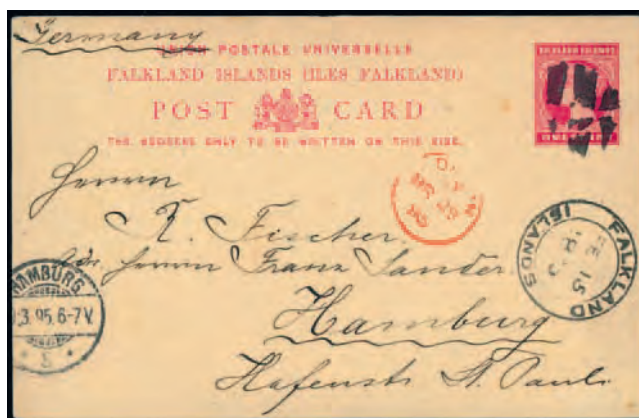 Germany
UNION POSTALE UNIVERSELLE
FALKLAND ISLANDS (ILES FALKLAND)
POST CARD
THE ADDRESS ONLY TO BE WRITTEN ON THIS SIDE.
FALKLAND ISLANDS
Herrn
K. Fischer.
Herrn Franz Sander
Hamburg
Hafenstr St. Pauli
FALKLAND ISLANDS
FE 15
HAMBURG
3.95.6-7V.